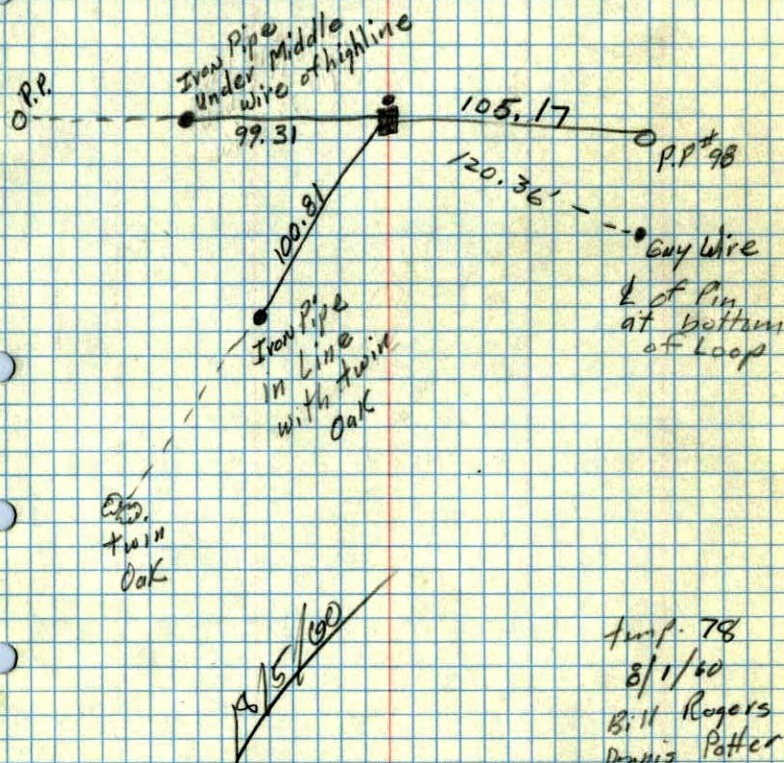 P.P.
Iron Pipe
under Middle
wire of highline
99.31
105.17
P.P #98
120.36'
Guy Wire
℄ of Pin
at bottom
of Loop
100.81
Iron Pipe
in Line
with twin
Oak
twin
Oak
8/5/60
temp. 78
8/1/60
Bill Rogers
Dennis Potter